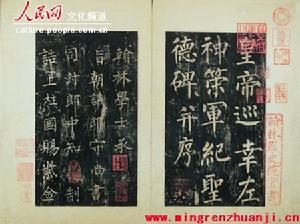 人民网 文化频道
皇帝巡幸左
神策軍紀聖
德碑并序
翰林學士承
旨朝議郎守尚書
司封郎中知
誥上柱國賜紫金
翰林國史院官書
www.mingrenzhuanji.cn